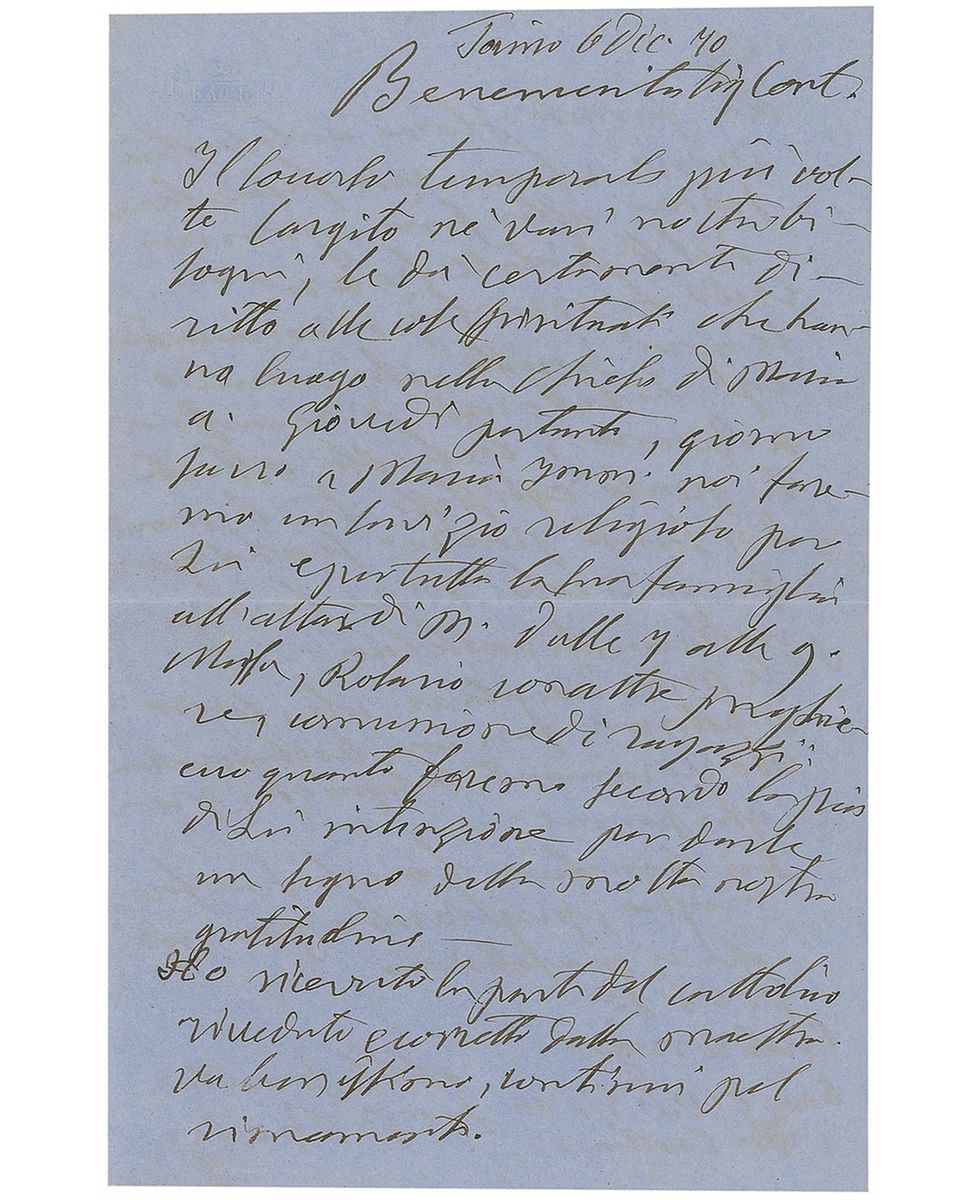 Torino 6 Dic. 70
Benemerita Sig Cont.
Il soccorso temporale più vol-
te largito ne' vari nostri bi-
sogni, le dà certamente di-
ritto alle cose spirituali che han-
no luogo nella chiesa di Mari
a. Giovedì pertanto, giorno
sacro a Maria Imm. noi fare-
mo un servizio religioso per
Lei e per tutta la sua famiglia
all'altar di M. Dalle 7 alle 9.
Messa, Rosario con altre preghie-
re, comunione di ragazzi;
ecco quanto faremo secondo la pia
di Lei intenzione per darle
un segno della molta nostra
gratitudine —
Ho ricevuto la parte del cattolico
riveduta e corretta dalla maestra.
Va benissimo, continui pel
rimanente.